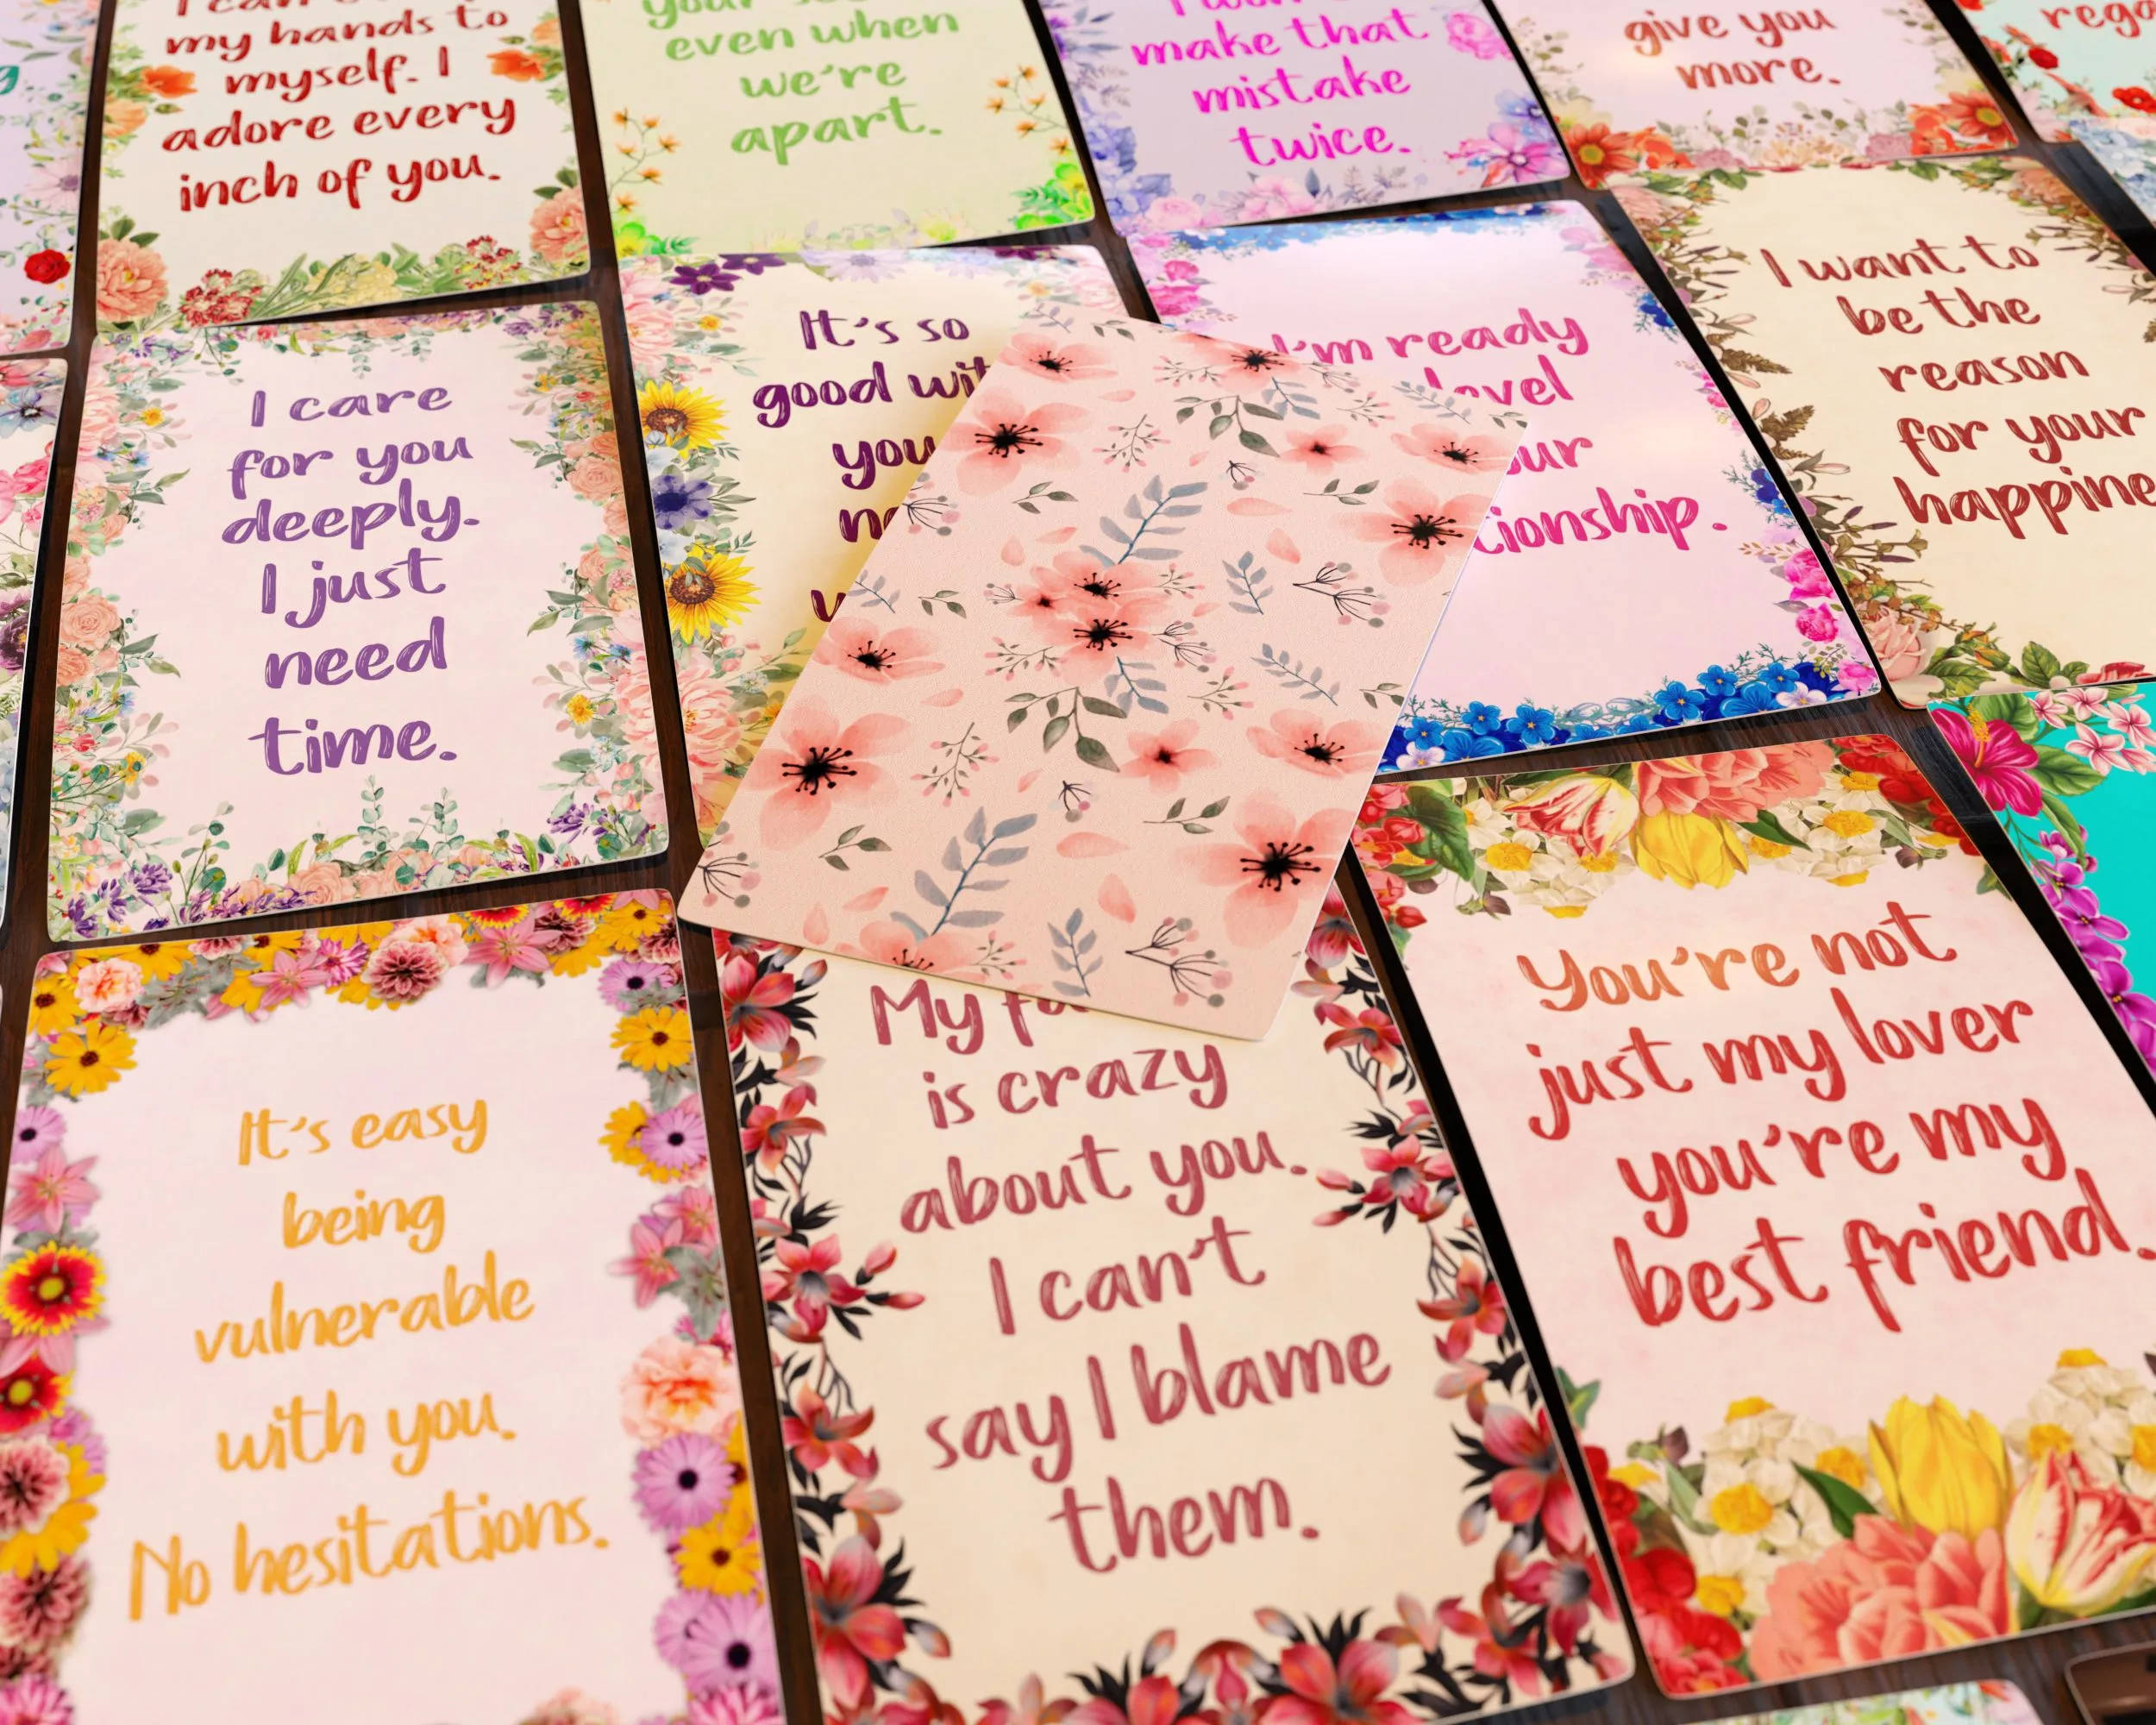 my hands to
myself. I
adore every
inch of you.
even when
we're
apart.
make that
mistake
twice.
give you
more.
I care
for you
deeply.
I just
need
time.
It's so
good
you
I'm ready
level
tionship.
I want to
be the
reason
for your
It's easy
being
vulnerable
with you.
No hesitations.
My
is crazy
about you.
I can't
say I blame
them.
You're not
just my lover
you're my
best friend.